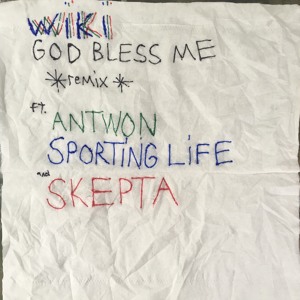 WiKi
GOD BLESS ME
*remix*
FT.
ANTWON
SPORTING LiFE
and
SKEPTA